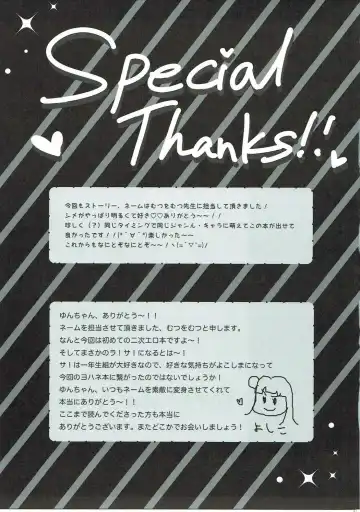 Special
Thanks!!
今回もストーリー、ネームはむつをむつ先生に担当して頂きました！
シメがやっぱり明るくて好き♡♡ありがとう〜〜！！
珍しく（？）同じタイミングで同じジャンル・キャラに萌えてこの本が出せて
良かったです！！(*´∀｀*)楽しかった〜〜
これからもなにとぞなにとぞ〜〜！ヽ(=´▽`=)ﾉ
ゆんちゃん、ありがとう〜！！
ネームを担当させて頂きました、むつをむつと申します。
なんと今回は初めての二次エロ本ですよ〜！
そしてまさかのラ！サ！になるとは〜！
サ！は一年生組が大好きなので、好きな気持ちがよこしまになって
今回のヨハネ本に繋がったのではないでしょうか！
ゆんちゃん、いつもネームを素敵に変身させてくれて
本当にありがとう〜！！
ここまで読んでくださった方も本当に
ありがとうございます。またどこかでお会いしましょう！
よしこ